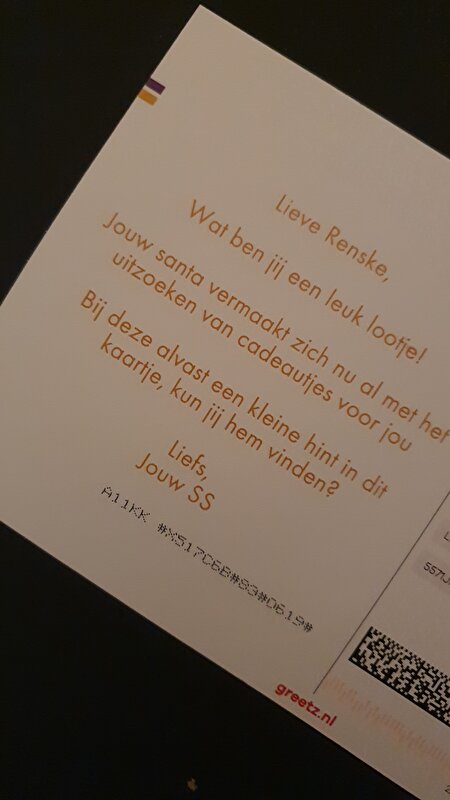 Lieve Renske,
Wat ben jij een leuk lootje!
Jouw santa vermaakt zich nu al met het
uitzoeken van cadeautjes voor jou
Bij deze alvast een kleine hint in dit
kaartje, kun jij hem vinden?
Liefs,
Jouw SS
A11KK #X517C6B#93#D619#
greetz.nl